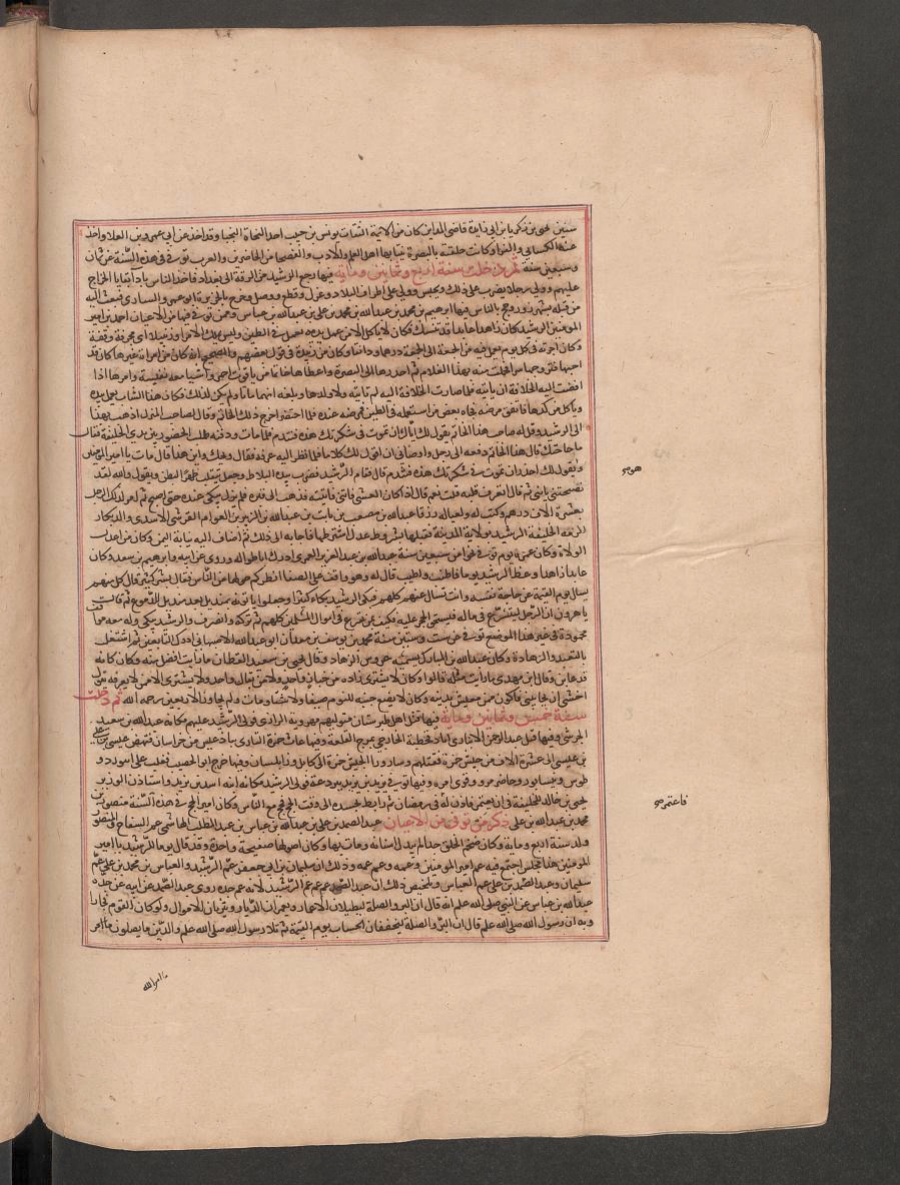 ستين يحيى بن زكريا بن ابي زايدة قاضي المداين كان من الائمة الثقات يونس بن حبيب احد النحاة النجبا وقد اخذ عن ابي عمرو بن العلا واخذ
عنه الكسائي والفرا وكانت حلقته بالبصرة ينتابها اهل العلم والادب والفصحا من الحاضرين والعرب توفي في هذه السنة عن ثمان
وسبعين سنة ثم دخلت سنة اربع وثمانين وماية فيها رجع الرشيد من الرقة الى بغداد فاخذ الناس باداء بقايا الخراج
عليهم وولى رجلا يضرب على ذلك ويحبس وولى على اطراف البلاد وعزل وقطع ووصل وخرج بالجزيرة ابو عمرو الشاري فبعث اليه
من قبله بشهرزور وحج بالناس فيها ابرهيم بن محمد بن عبدالله بن محمد بن علي بن عبدالله بن عباس وممن توفي فيها من الاعيان احمد بن امير
المومنين الرشيد كان زاهدا عابدا قد تنسك فكان لا ياكل الا من عمل يده يعمل في الطين وليس يملك الا مرا وزنبيلا اي مجرفة وقفة
وكان اجرته في كل يوم يعمل فيه من الجمعة الى الجمعة درهما ودانقا وكان من زبيدة في قول بعضهم والصحيح انه كان من امراة غيرها كان قد
احبها فتزوجها سرا فحملت منه بهذا الغلام ثم احدرها الى البصرة واعطاها خاتما من ياقوت احمر واشيا معه نفيسة وامرها اذا
افضت اليه الخلافة ان ياتيه فلما صارت الخلافة اليه لم تاتيه ولا ولدها وبلغه انهما ماتا ولم يكن كذلك فكان هذا الشاب يعمل بيده
وياكل من كدها فاتفق مرضه فجاه بعض من استعمله في الطين فمرضه عنده فلما احتضر اخرج ذلك الخاتم وقال لصاحب المنزل اذهب بهذا
الى الرشيد وقل له صاحب هذا الخاتم يقول لك اياك ان تموت في سكرتك هذه فتندم فلما مات ودفنه طلب الحضور بين يدي الخليفة فقال
ما حاجتك قال هذا الخاتم دفعه الى رجل واوصاني ان اقول لك كلاما فلما نظر اليه عرفه فقال ويحك واين هذا قال مات يا امير المومنين
ويقول لك احذر ان تموت في سكرتك هذه فتندم قال فقام الرشيد فضرب بيده البلاط وجعل يتقلب ظهرا لبطن ويقول والله لقد
نصحتني يا بني ثم قال اتعرف قبره قلت نعم قال اذا كان العشي فاتني فاتيته فذهب الى قبره فلم يزل يبكي عنده حتى اصبح ثم امر لذلك الرجل
بعشرة الاف درهم وكتب له ولعياله رزقا عبدالله بن مصعب بن ثابت بن عبدالله بن الزبير بن العوام القرشي الاسدي والد بكار
الزمه الخليفة الرشيد بولاية المدينة فقبلها بشروط عدل اشترطها فاجابه الى ذلك ثم اضاف اليه نيابة اليمن وكان من اعدل
الولاة وكان عمره يوم توفي نحوا من سبعين سنة عبدالله بن عبد العزيز العمري ادرك ابا طوالة وروى عن ابيه وابرهيم بن سعد وكان
عابدا زاهدا وعظ الرشيد يوما فاطنب واطيب قال له وهو واقف على الصفا انظركم حولها من الناس فقال بشر كثير قال كل منهم
يسال يوم القيمة عن خاصة نفسه وانت تسال عنهم كلهم فبكى الرشيد بكاء كثيرا وجعلوا ياتونه بمنديل بعد منديل للدموع ثم قال
يا هرون ان الرجل ليتسرع في ماله فيستحق الحجر عليه فكيف بمن تسرع في اموال المسلمين كلهم ثم تركه وانصرف والرشيد يبكي وله معه مواقف
محمودة في غير هذا الموضع توفي عن ست وستين سنة محمد بن يوسف بن معدان ابو عبدالله الاصبهاني ادرك التابعين ثم اشتغل
بالتعبد والزهادة وكان عبدالله بن المبارك يسميه عروس الزهاد وقال يحيى بن سعيد القطان ما رايت افضل منه وكان كانه
قد عاين وقال ابن مهدي ما رايت مثله قالوا وكان لا يشتري زاده من خباز واحد ولا من بقال واحد ولا يشتري الا من لا يعرفه يقول
اخشى ان يحابيني فاكون ممن يعيش بدينه وكان لا يضع جنبه للنوم صيفا ولا شتاء ومات ولم يجاوز الاربعين رحمه الله ثم دخلت
سنة خمس وثمانين وماية فيها قتل اهل طبرستان متوليهم مهرويه الرازي فولى الرشيد عليهم مكانه عبدالله بن سعيد
الحرشي وفيها قتل عبد الرحمن الانباري ابان بن قحطبة الخارجي بمرج القلعة وفيها عاث حمزة الشاري باذغيس من خراسان فنهض عيسى بن علي
بن عيسى الى عشرة الاف من جيش حمزة فقتلهم وسار وراء الجيش حمزة الى كابل وزابلستان وفيها خرج ابو الخصيب فغلب على ابيورد و
طوس ونيسابور وحاصر مرو وقوي امره وفيها توفي يزيد بن مزيد ببردعة فولى الرشيد مكانه ابنه اسد بن يزيد واستاذن الوزير
يحيى بن خالد الخليفة في ان يعتمر فاذن له في رمضان ثم رابط بجدة الى وقت الحج فحج مع الناس وكان امير الحج في هذه السنة منصور بن
محمد بن عبدالله بن علي ذكر من توفي من الاعيان عبد الصمد بن علي بن عبدالله بن عباس بن عبد المطلب الهاشمي عم السفاح والمنصور
ولد سنة اربع وماية وكان ضخم الخلق جدا لم يبدل اسنانه ومات بها وكان اصولها صفيحة واحدة وقد قال يوما للرشيد يا امير
المومنين هذا مجلس اجتمع فيه عم امير المومنين وعمه وعم عمه وذلك ان سليمان بن ابي جعفر عم الرشيد والعباس بن محمد بن علي عم
سليمان وعبد الصمد بن علي عم العباس وتلخيص ذلك ان عبد الصمد عم عم عم الرشيد لانه عم جده روى عبد الصمد عن ابيه عن جده
عبدالله بن عباس عن النبي صلى الله عليه انه قال ان البر والصلة ليطيلان الاعمار ويعمران الديار ويثريان الاموال ولو كان القوم فجارا
وبه ان رسول الله صلى الله عليه قال ان البر والصلة ليخففان الحساب يوم القيمة ثم تلا رسول الله صلى الله عليه والذين يصلون ما امر
هو
فاعتمر
ما امر الله